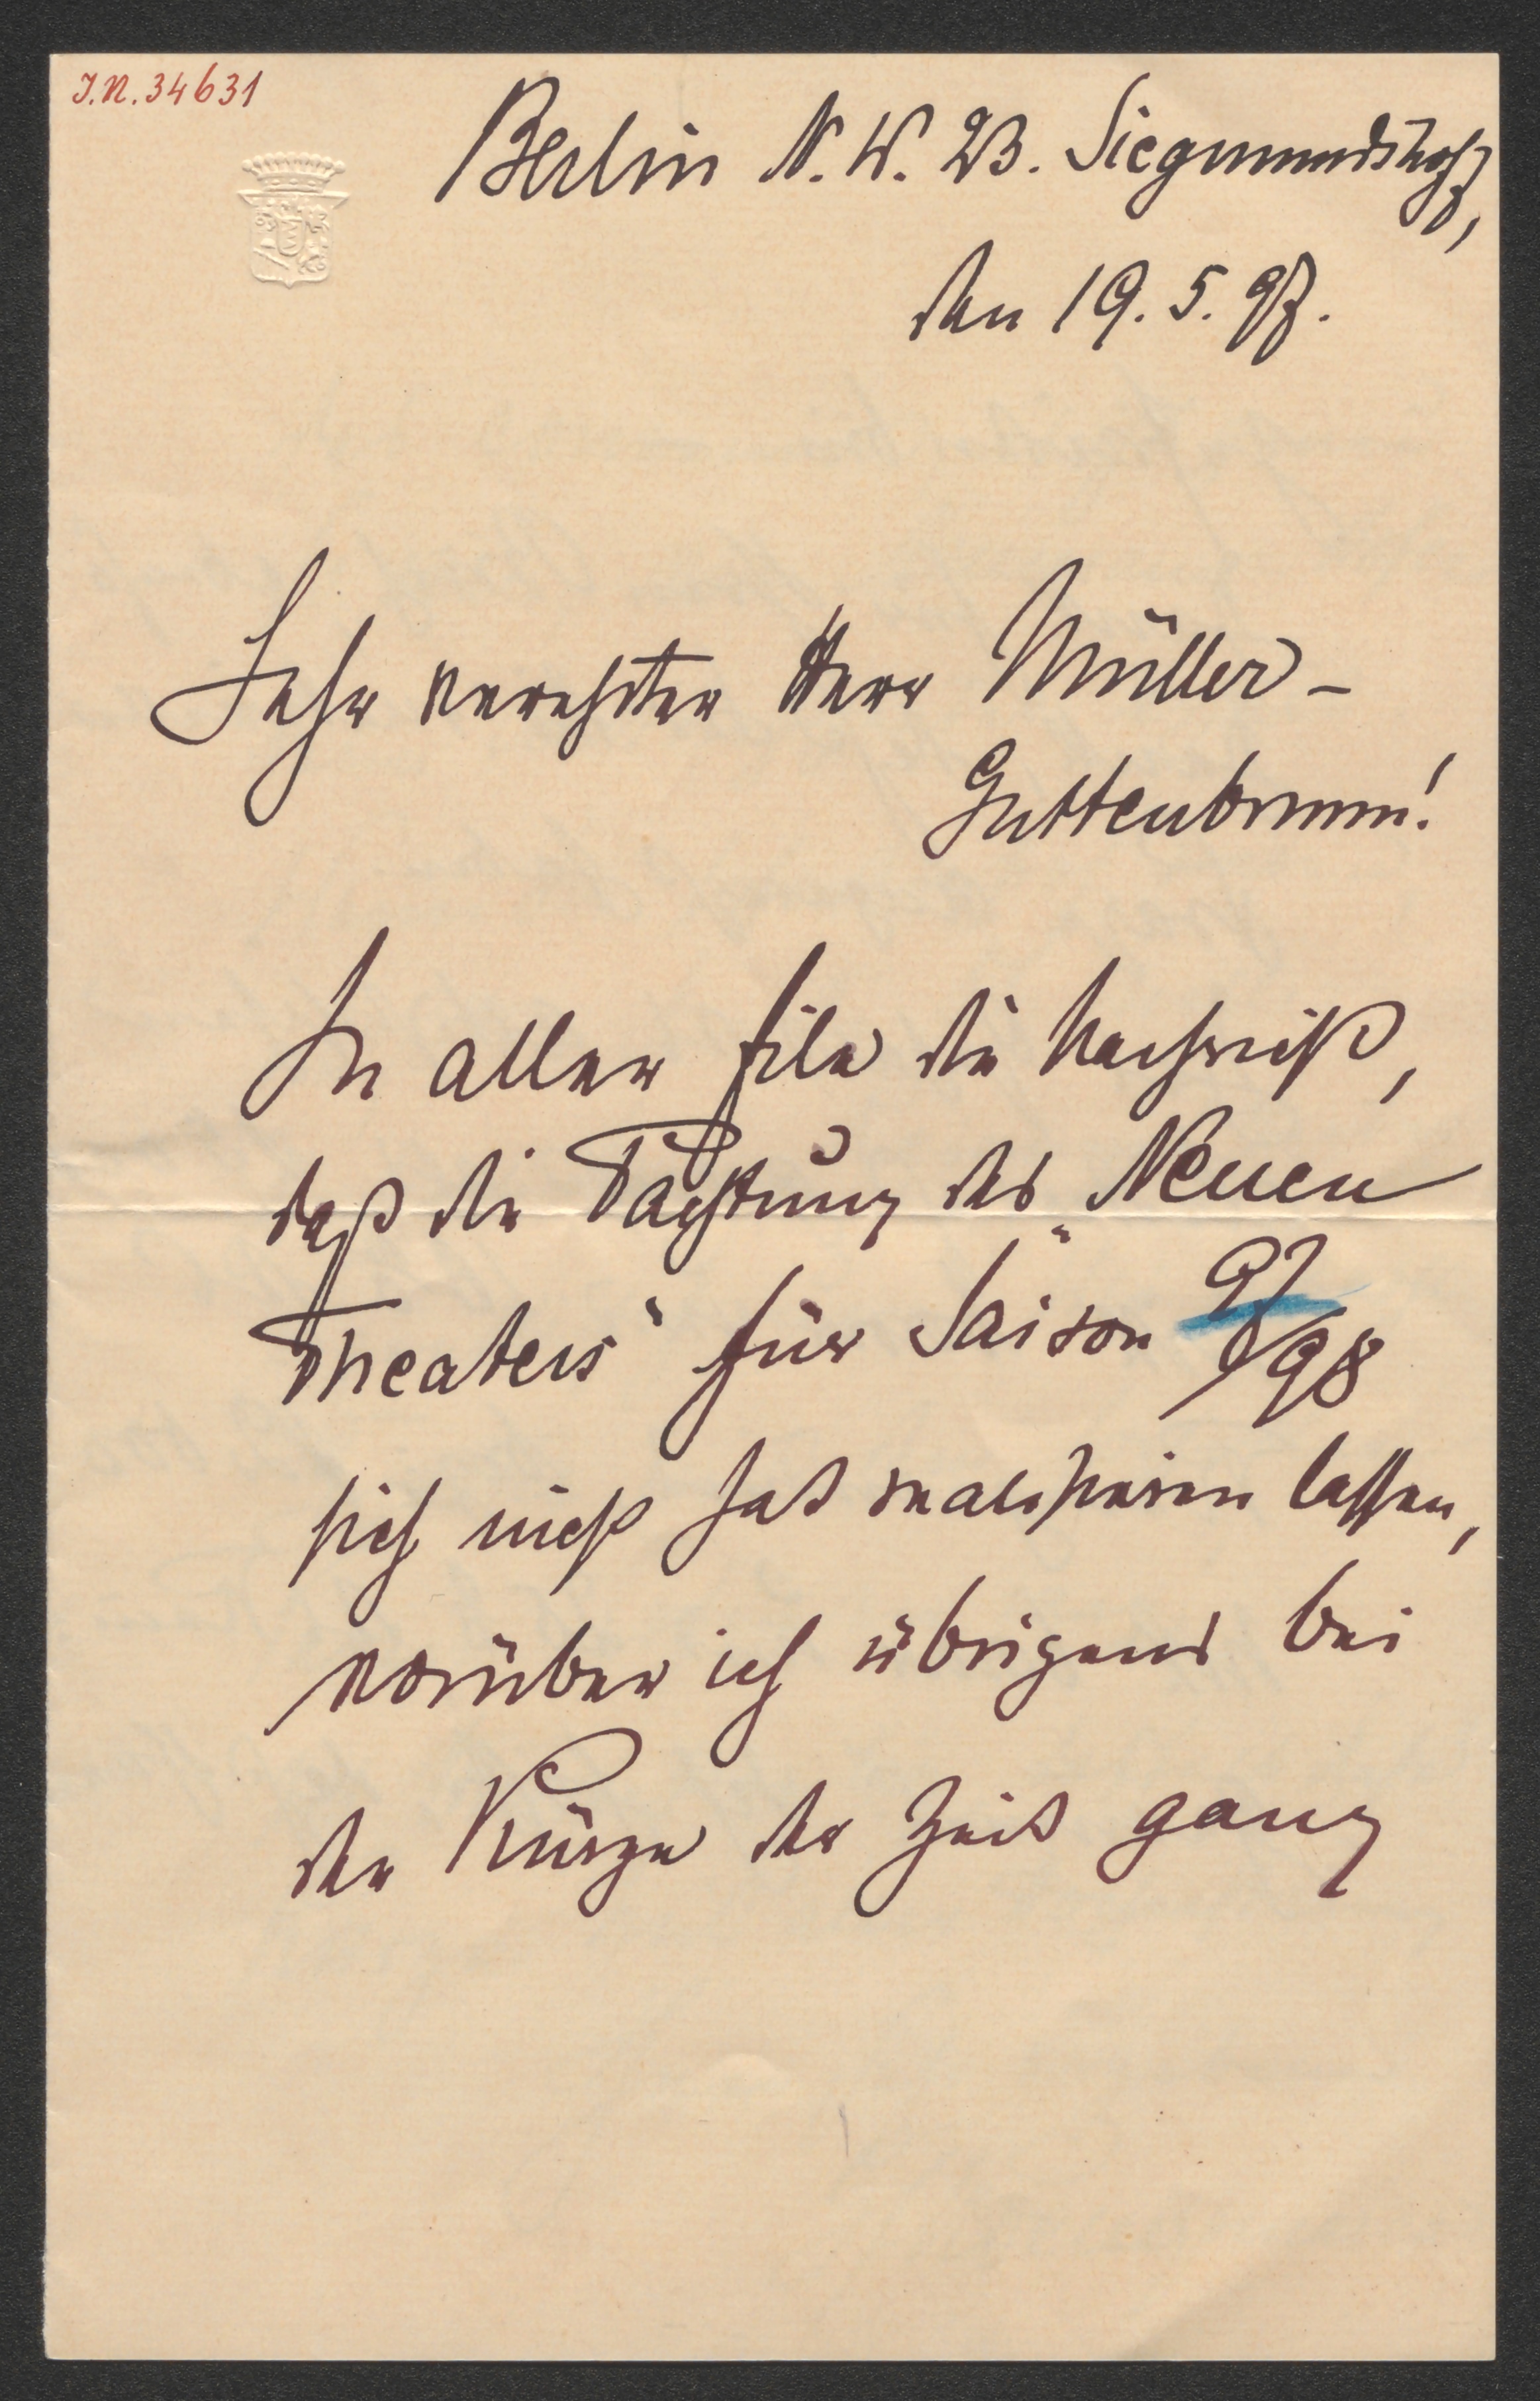 J.N. 34631
Berlin N. W. 23. Siegmundshof 7,
den 19. 5. 97.
Sehr verehrter Herr Müller-
Guttenbrunn!
In aller Eile die Nachricht,
daß die Pachtung des „Neuen
Theaters“ für Saison 97/98
sich nicht hat realisieren lassen,
worüber ich übrigens bei
der Kürze der Zeit ganz